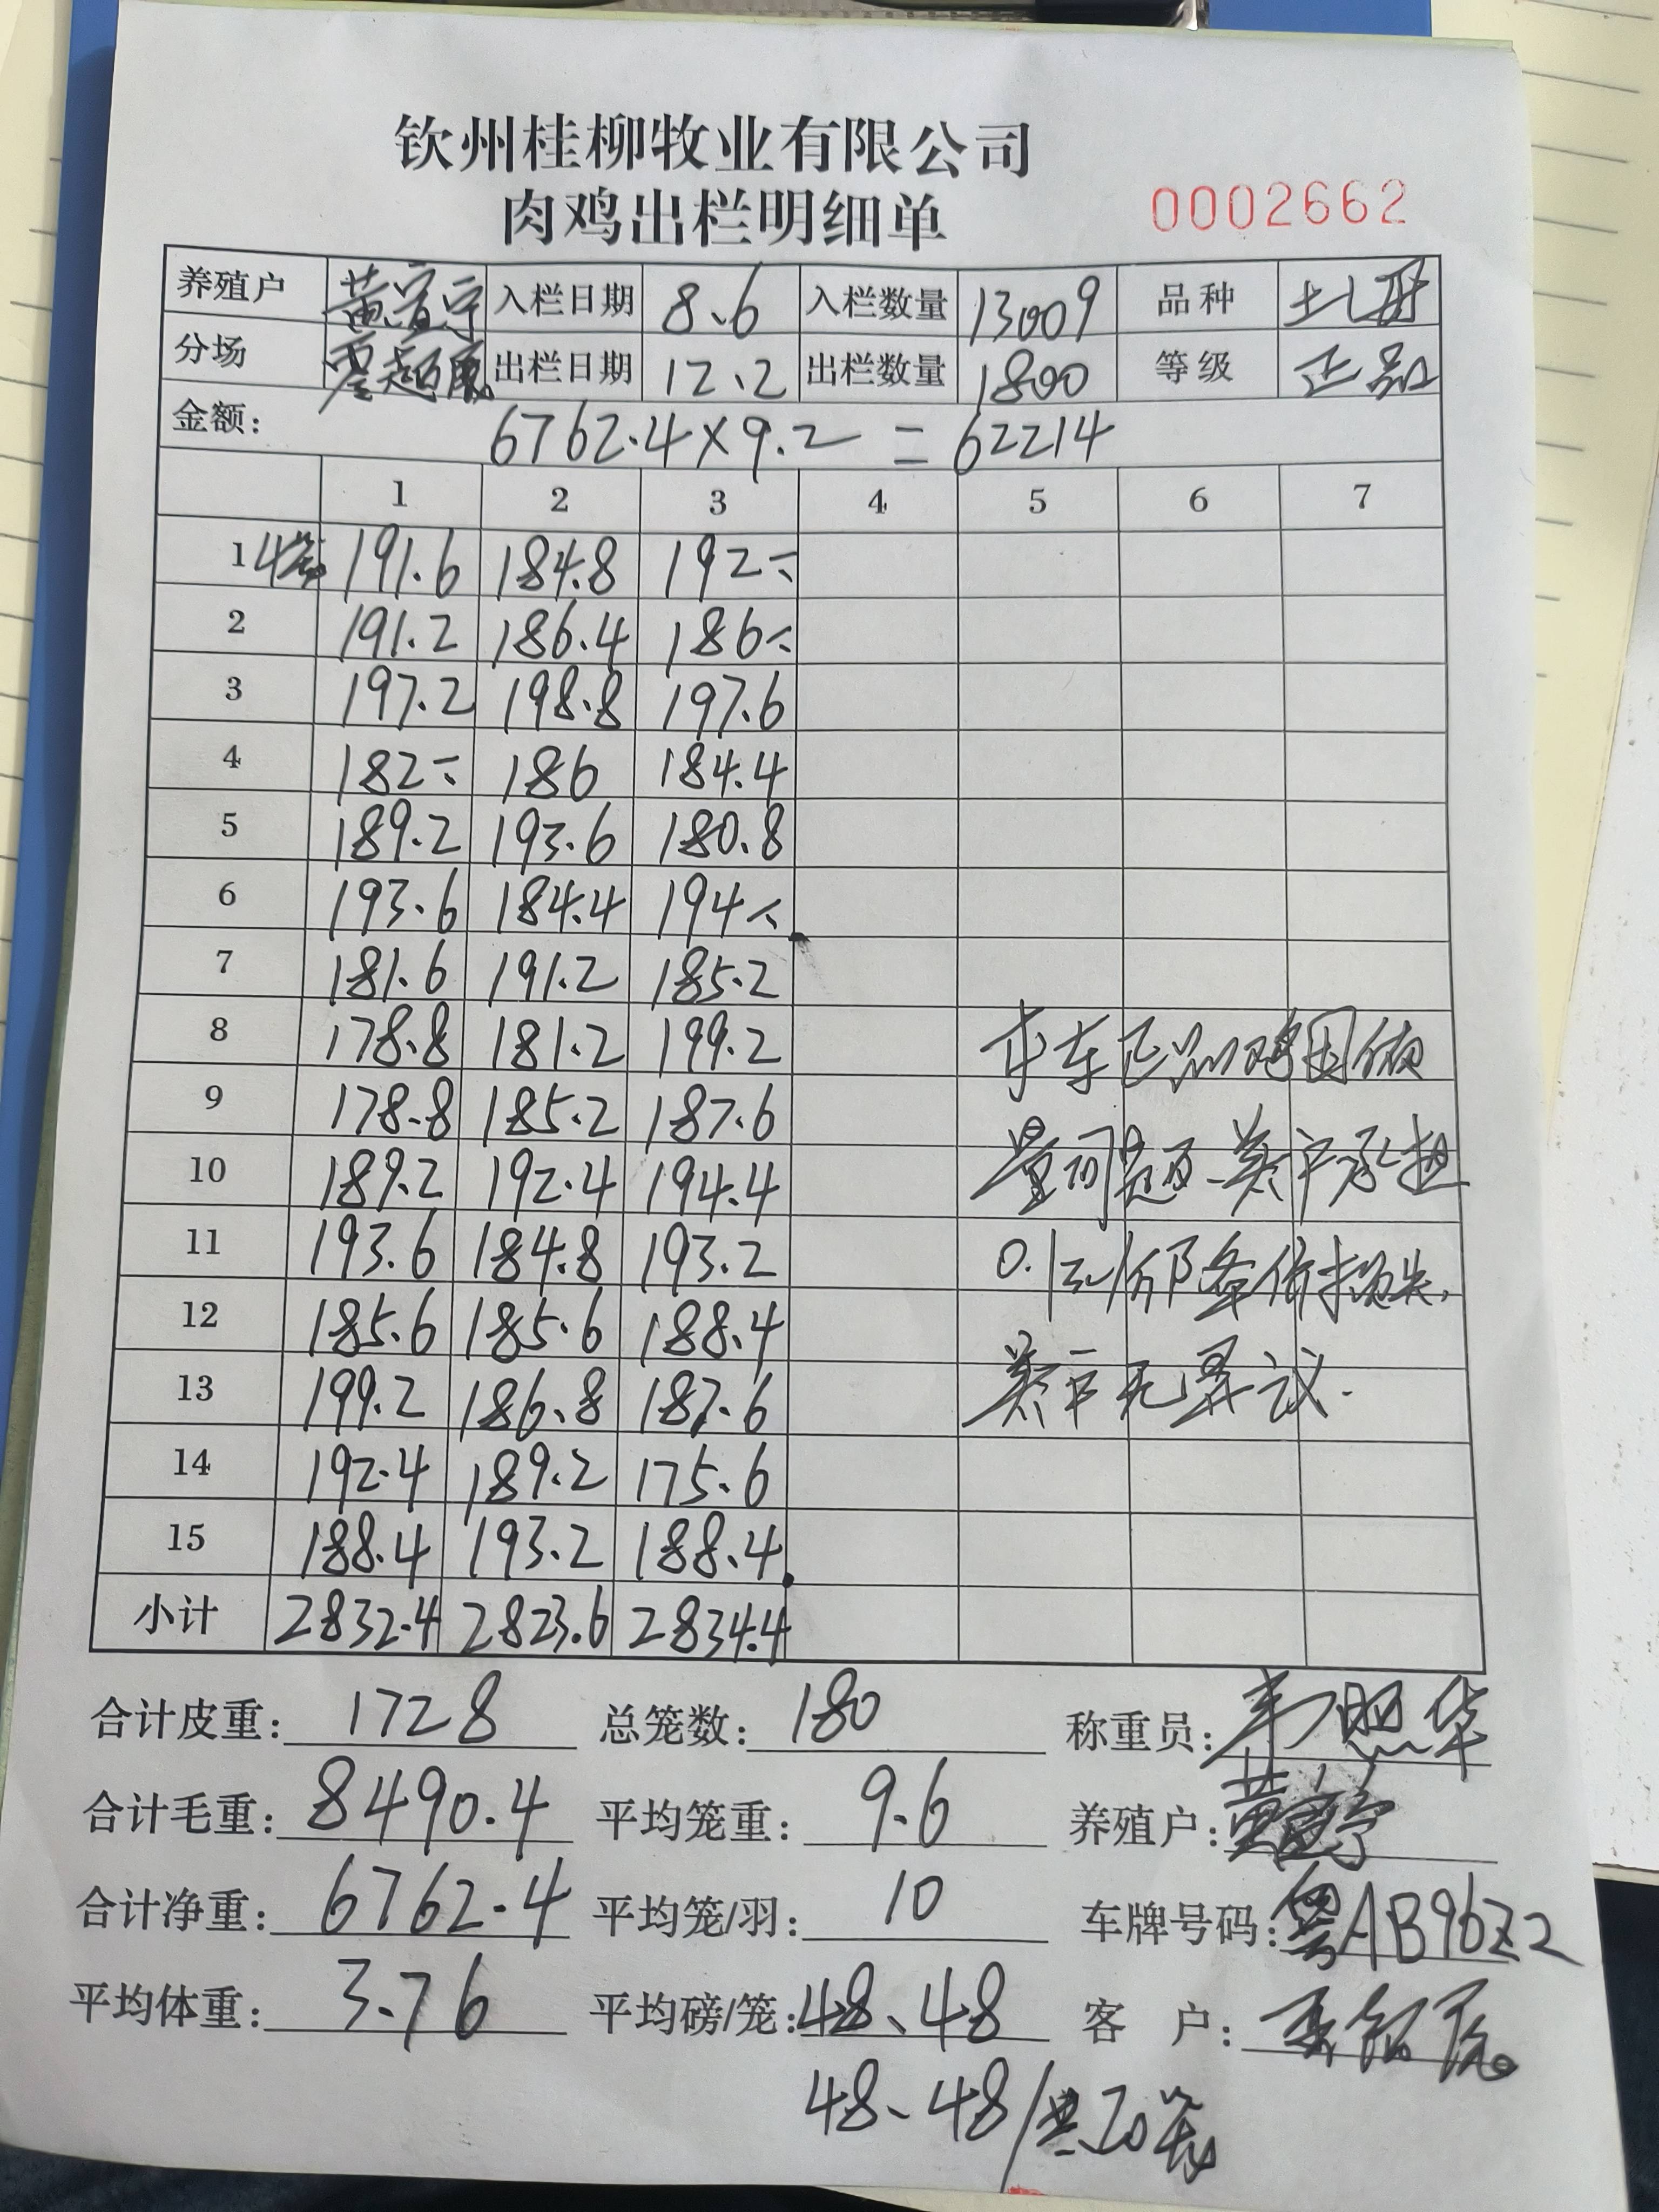 钦州桂柳牧业有限公司
肉鸡出栏明细单 0002662
养殖户 黄宣宁 入栏日期 8.6 入栏数量 13009 品种 土2
分场 覃超 出栏日期 12.2 出栏数量 1800 等级 正品
金额: 6762.4×9.2=62214
1 2 3 4 5 6 7
1 4笼 191.6 184.8 192
2 191.2 186.4 186
3 197.2 198.8 197.6
4 182 186 184.4
5 189.2 193.6 180.8
6 193.6 184.4 194
7 181.6 191.2 185.2
8 178.8 181.2 199.2 本车正品鸡因质
9 178.8 185.2 187.6
10 189.2 192.4 194.4 量问题、养户承担
11 193.6 184.8 193.2 0.1元/斤降价损失,
12 185.6 185.6 188.4
13 199.2 186.8 187.6 养户无异议.
14 192.4 189.2 175.6
15 188.4 193.2 188.4
小计 2832.4 2823.6 2834.4
合计皮重: 1728 总笼数: 180 称重员: 韦照华
合计毛重: 8490.4 平均笼重: 9.6 养殖户: 黄宣宁
合计净重: 6762.4 平均笼/羽: 10 车牌号码: 粤AB96Z2
平均体重: 3.76 平均磅/笼: 48、48 客 户:
48、48/共20笼